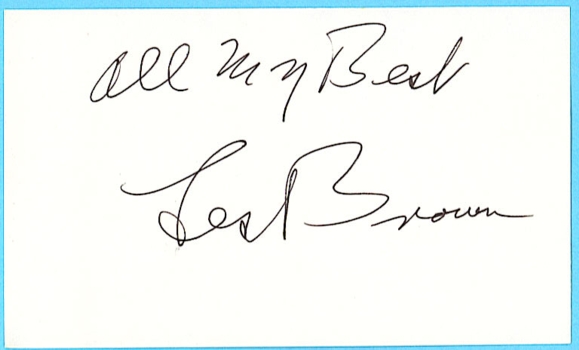 All My Best
Les Brown